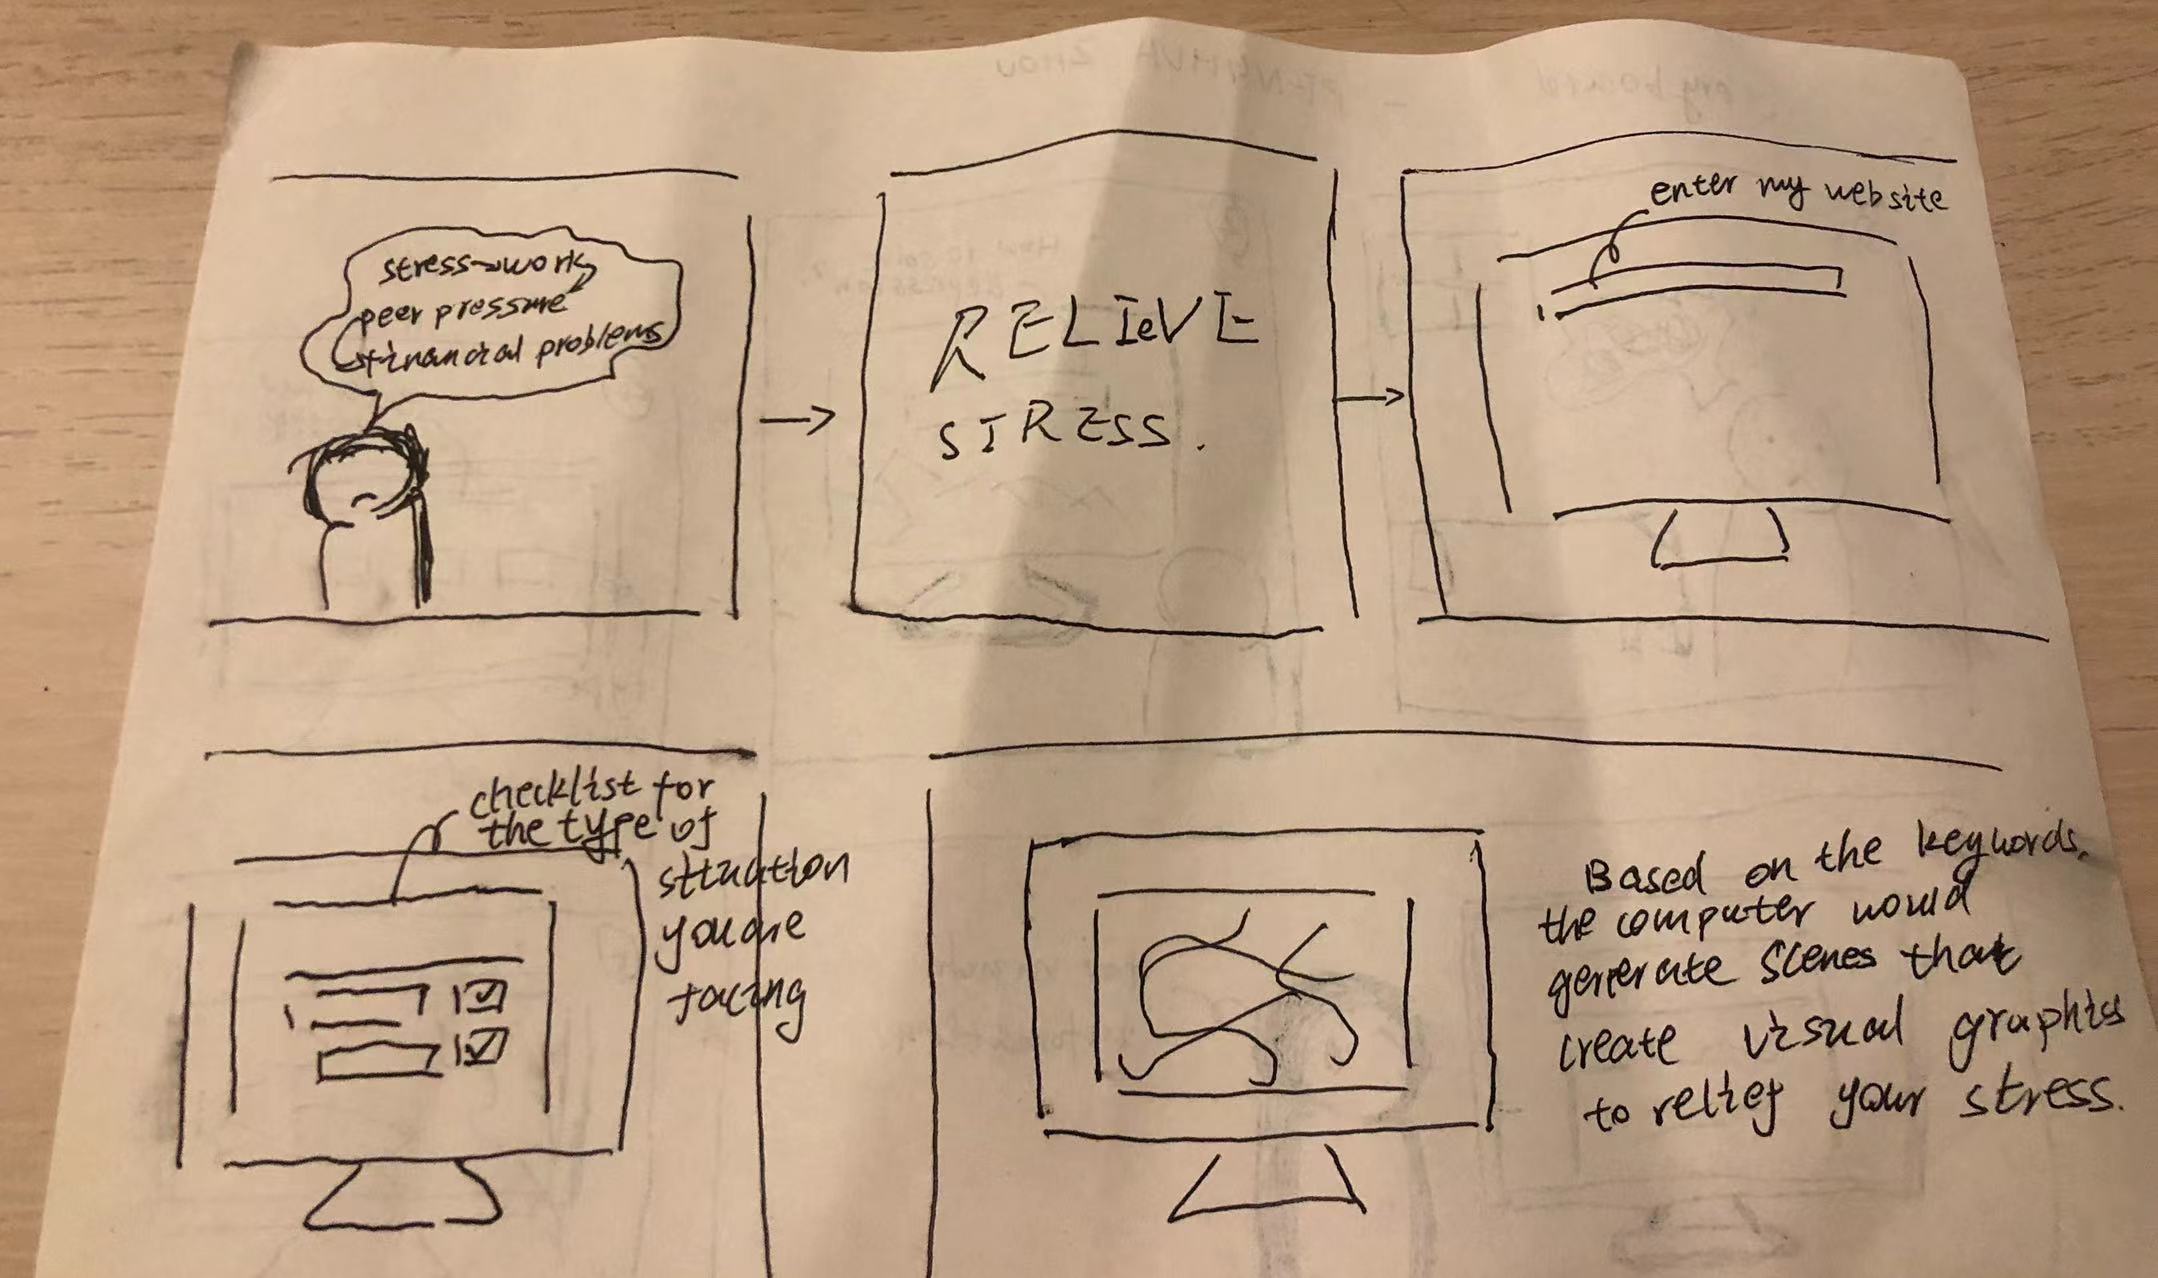 stress→work
peer pressure
financial problems
RELIEVE
STRESS.
enter my website
checklist for
the type of
situation
you are
facing
Based on the keywords,
the computer would
generate scenes that
create visual graphics
to relief your stress.